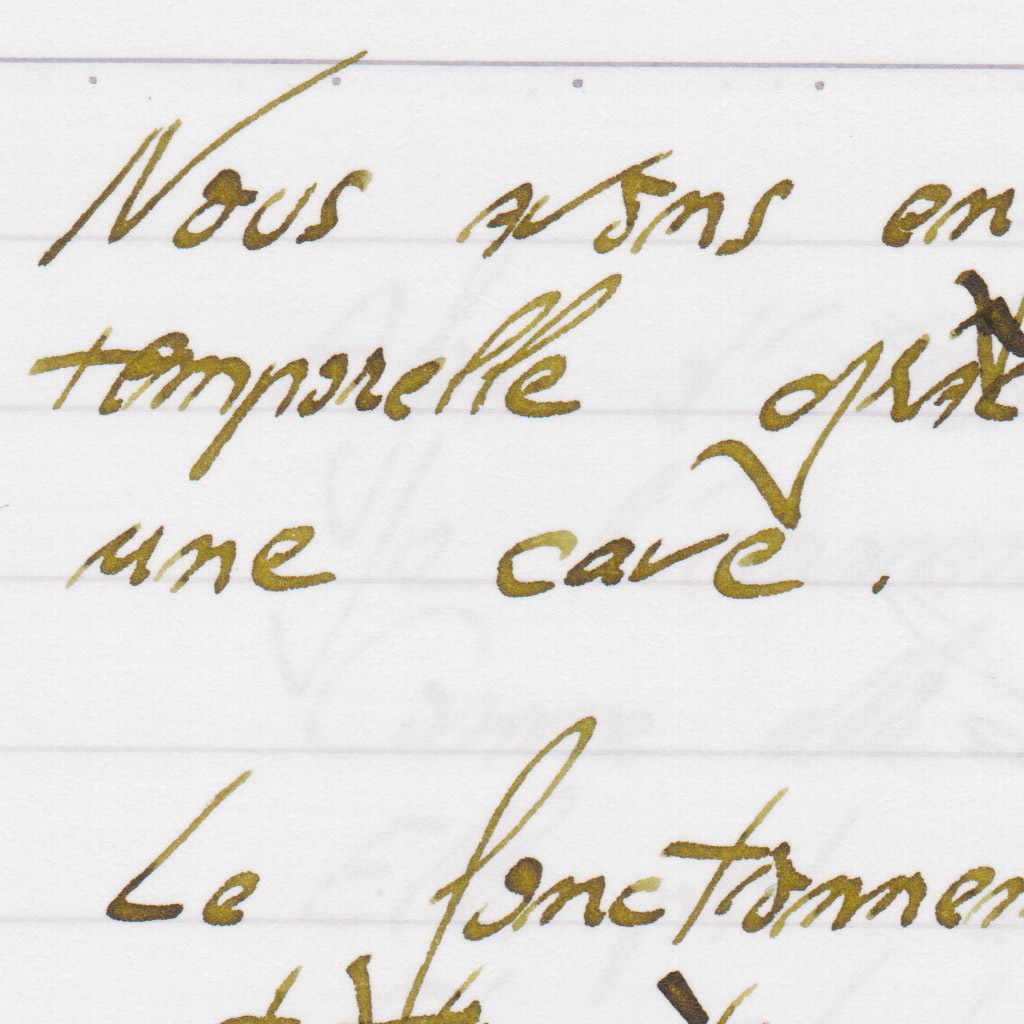 Nous avons en
temporelle
une cave.
Le fonctionnem